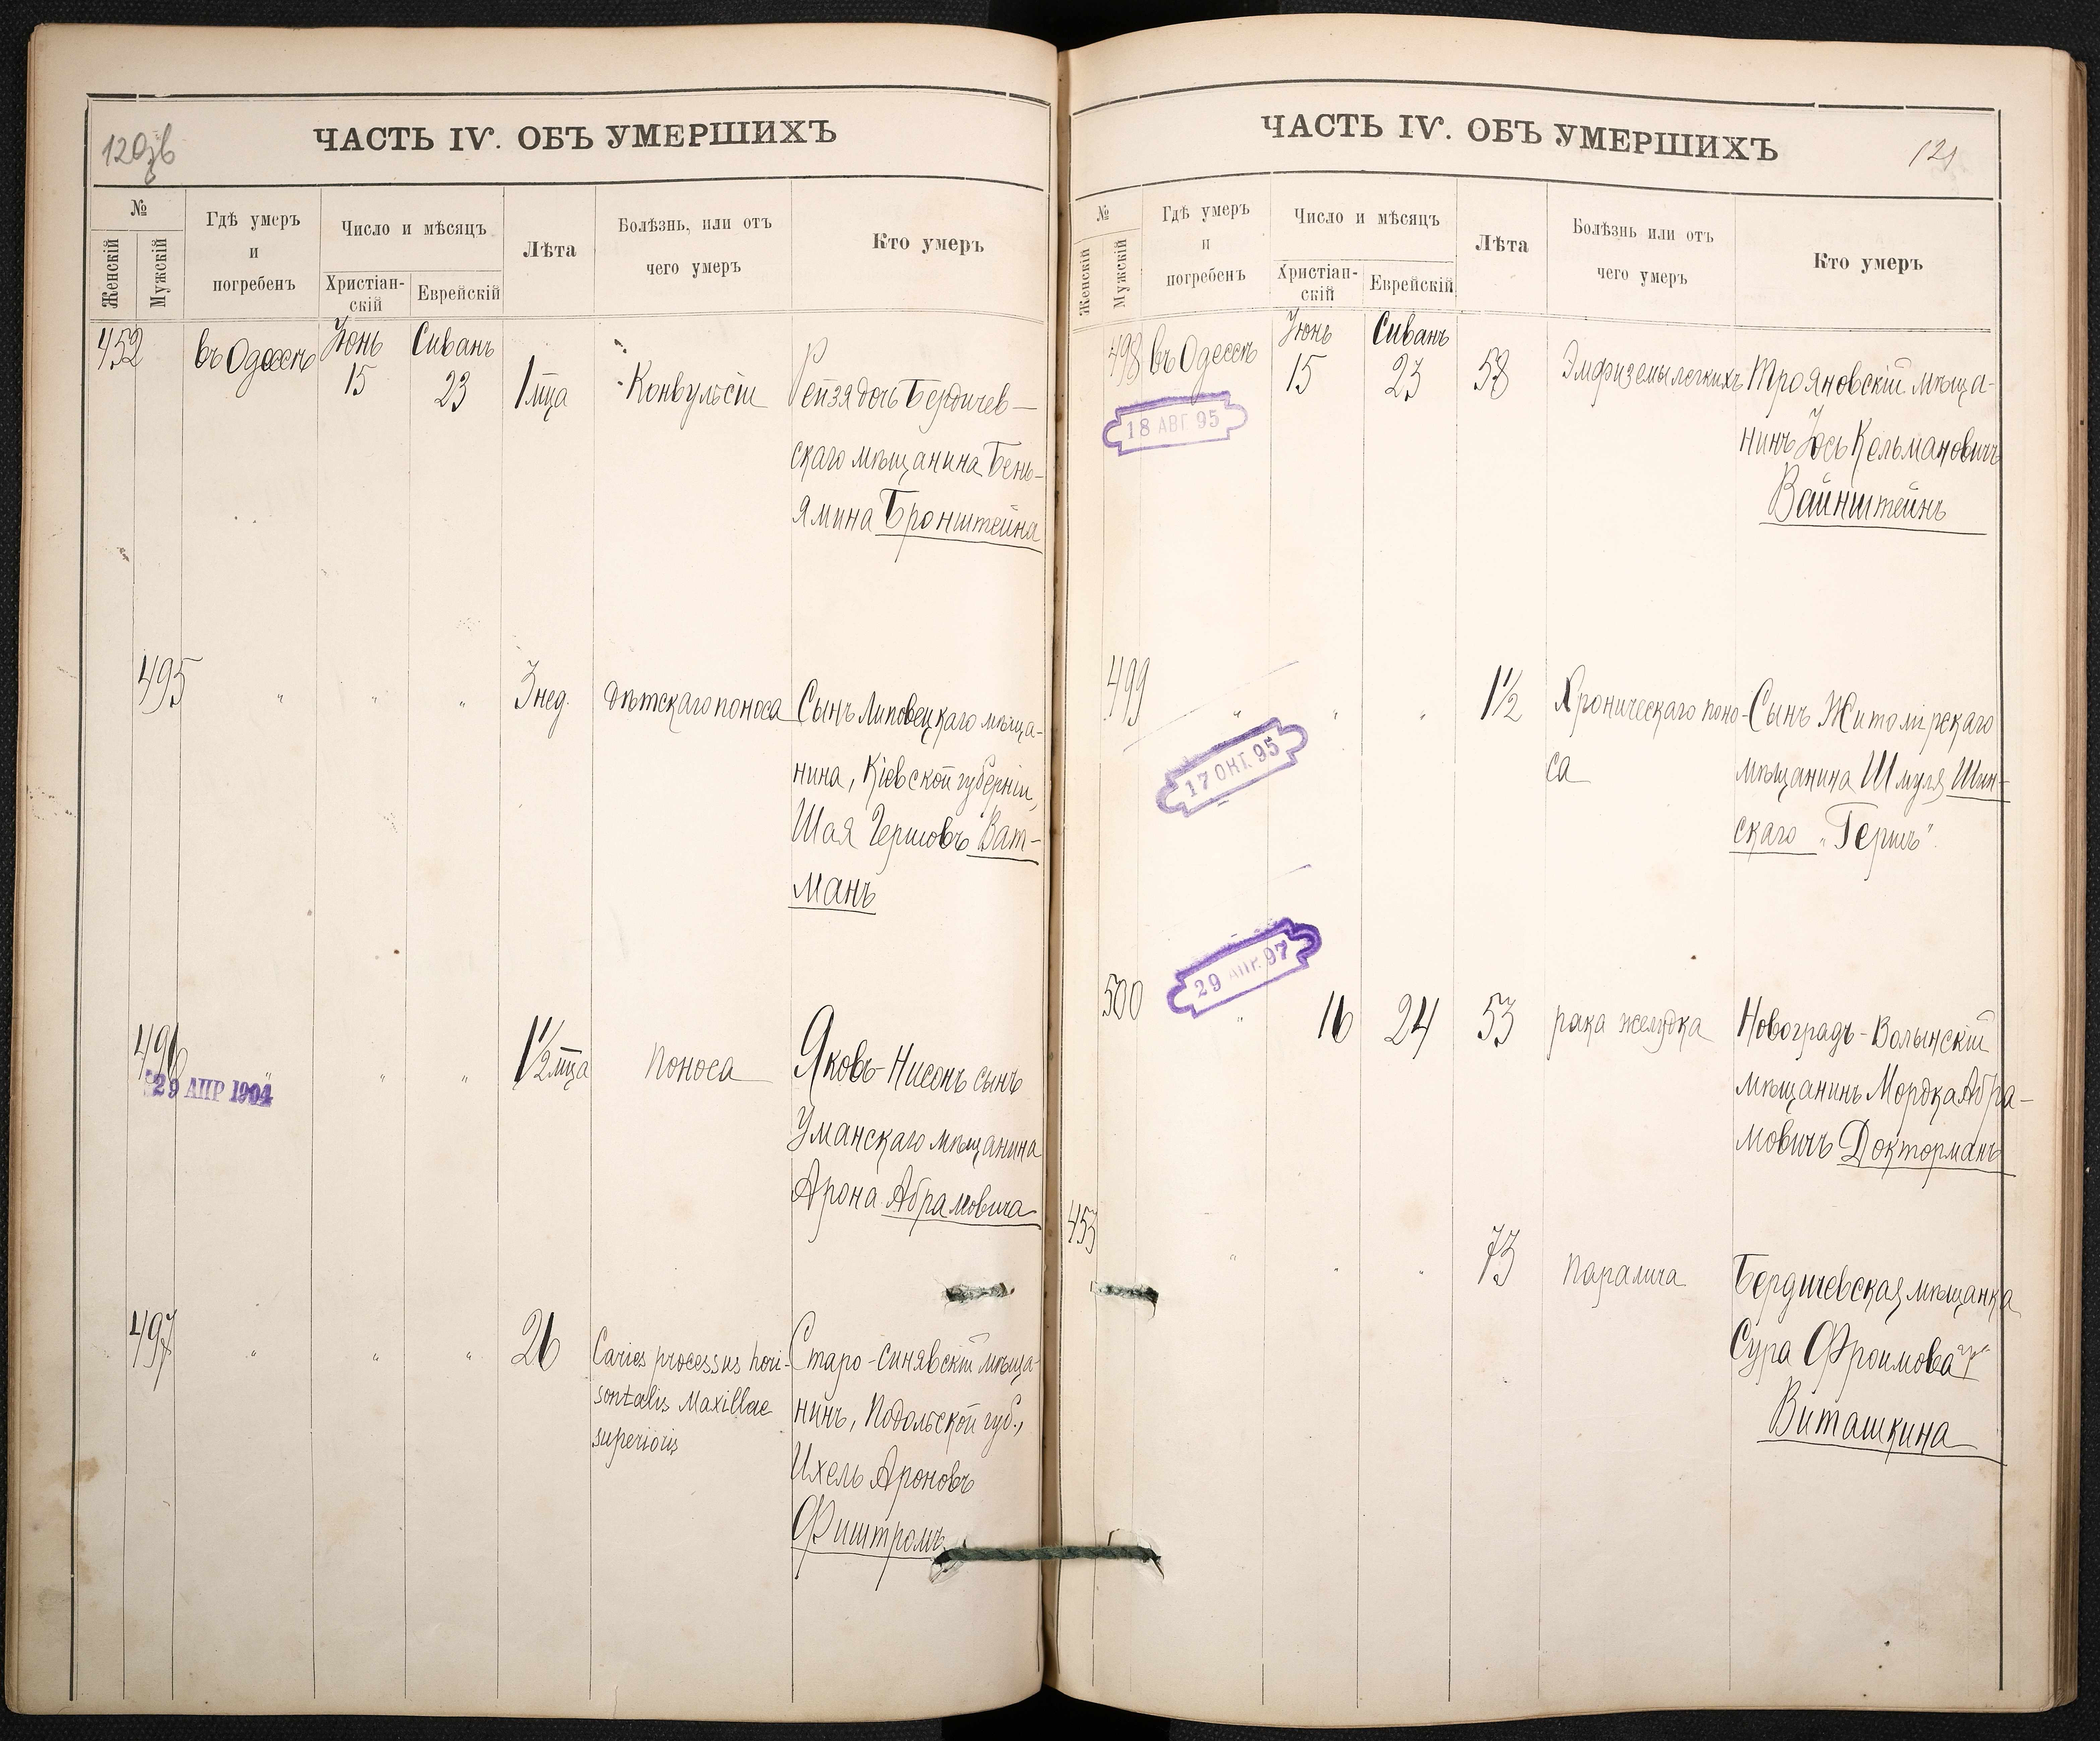 120зв
ЧАСТЬ IV. ОБЪ УМЕРШИХЪ
№
Женскій
Мужскій
Гдѣ умеръ
и
погребенъ
Число и мѣсяцъ
Христіан-
скій
Еврейскій
Лѣта
Болѣзнь, или отъ
чего умеръ
Кто умеръ
452 въ Одессѣ Іюнь 15 Сиванъ 23 1 мца Конвульсіи Рейзя дочь Бердичев-
скаго мѣщанина Бень-
ямина Бронштейна
495 " " " 3 нед. дѣтскаго поноса Сынъ Липовецкаго мѣща-
нина, Кіевской губерніи,
Шая Гершовъ Ват-
манъ
496 " " " 1½ мца поноса Яковъ-Нисонъ сынъ
29 АПР 1904
Уманскаго мѣщанина
Арона Абрамовича
497 " " " 26 Caries processus hori- Старо-синявскій мѣща-
sontalis Maxillae нинъ, Подольской губ.,
superioris Ихель Ароновъ
Фиштромъ
ЧАСТЬ IV. ОБЪ УМЕРШИХЪ
121
№
Женскій
Мужскій
Гдѣ умеръ
и
погребенъ
Число и мѣсяцъ
Христіан-
скій
Еврейскій
Лѣта
Болѣзнь или отъ
чего умеръ
Кто умеръ
498 въ Одессѣ Іюнь 15 Сиванъ 23 58 Эмфиземы легкихъ Трояновскій мѣща-
18 АВГ 95
нинъ Іось Кельмановичъ
Вайнштейнъ
499 " " " 1½ Хроническаго поно- Сынъ Житомірскаго
17 ОКТ. 95
са мѣщанина Шмуля Шин-
скаго „Гершъ"
29 АПР. 97
500 " 16 24 53 рака желудка Новоградъ-Волынскій
мѣщанинъ Мордка Абра-
мовичъ Докторманъ
453 " " " 73 паралича Бердичевская мѣщанка
Сура Фроимова
Виташкина